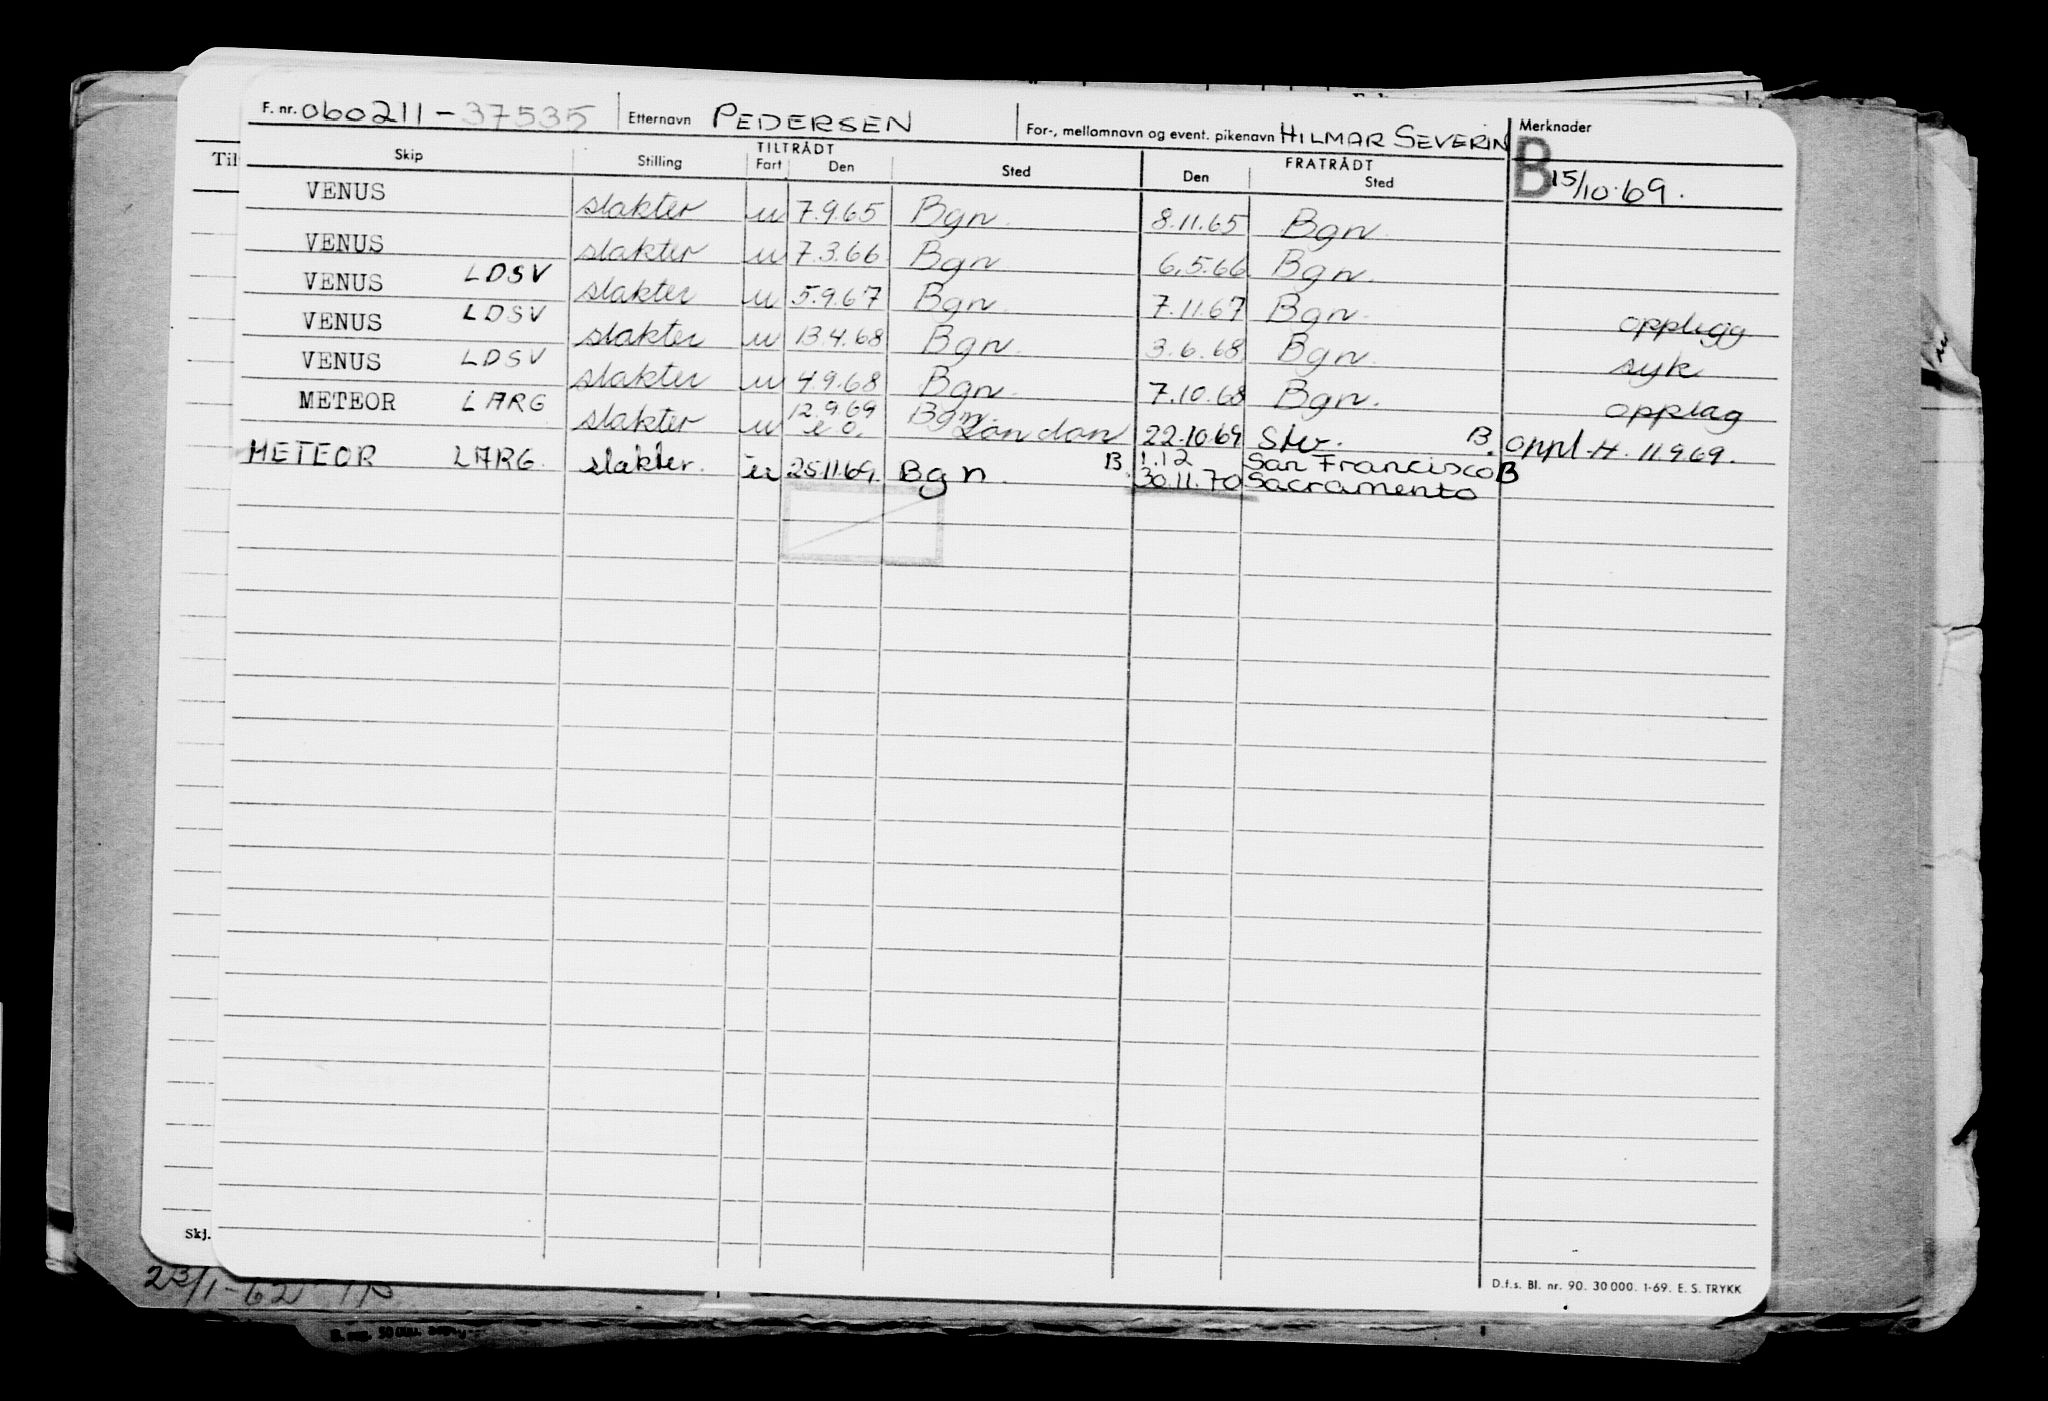 F. nr. 060211-37535 Etternavn PEDERSEN For-, mellomnavn og event. pikenavn HILMAR SEVERIN Merknader
TILTRÅDT FRATRÅDT B 15/10.69.
Skip Stilling Fart Den Sted Den Sted
VENUS slakter u 7.9.65 Bgn. 8.11.65 Bgn.
VENUS slakter u 7.3.66 Bgn 6.5.66 Bgn.
VENUS LDSV slakter u 5.9.67 Bgn. 7.11.67 Bgn. opplegg
VENUS LDSV slakter u 13.4.68 Bgn. 3.6.68 Bgn. syk
VENUS LDSV slakter u 4.9.68 Bgn. 7.10.68 Bgn. opplag
METEOR LARG slakter u 12.9.69 e.o. Bgn. London 22.10.69 Stv. B. oppl. H. 11.9.69.
METEOR LARG. slakter. u 25.11.69. Bgn. B. 1.12 San Francisco B
30.11.70 Sacramento
Til
Skj.
D.f.s. Bl. nr. 90. 30 000. 1-69. E. S. TRYKK
23/1-62